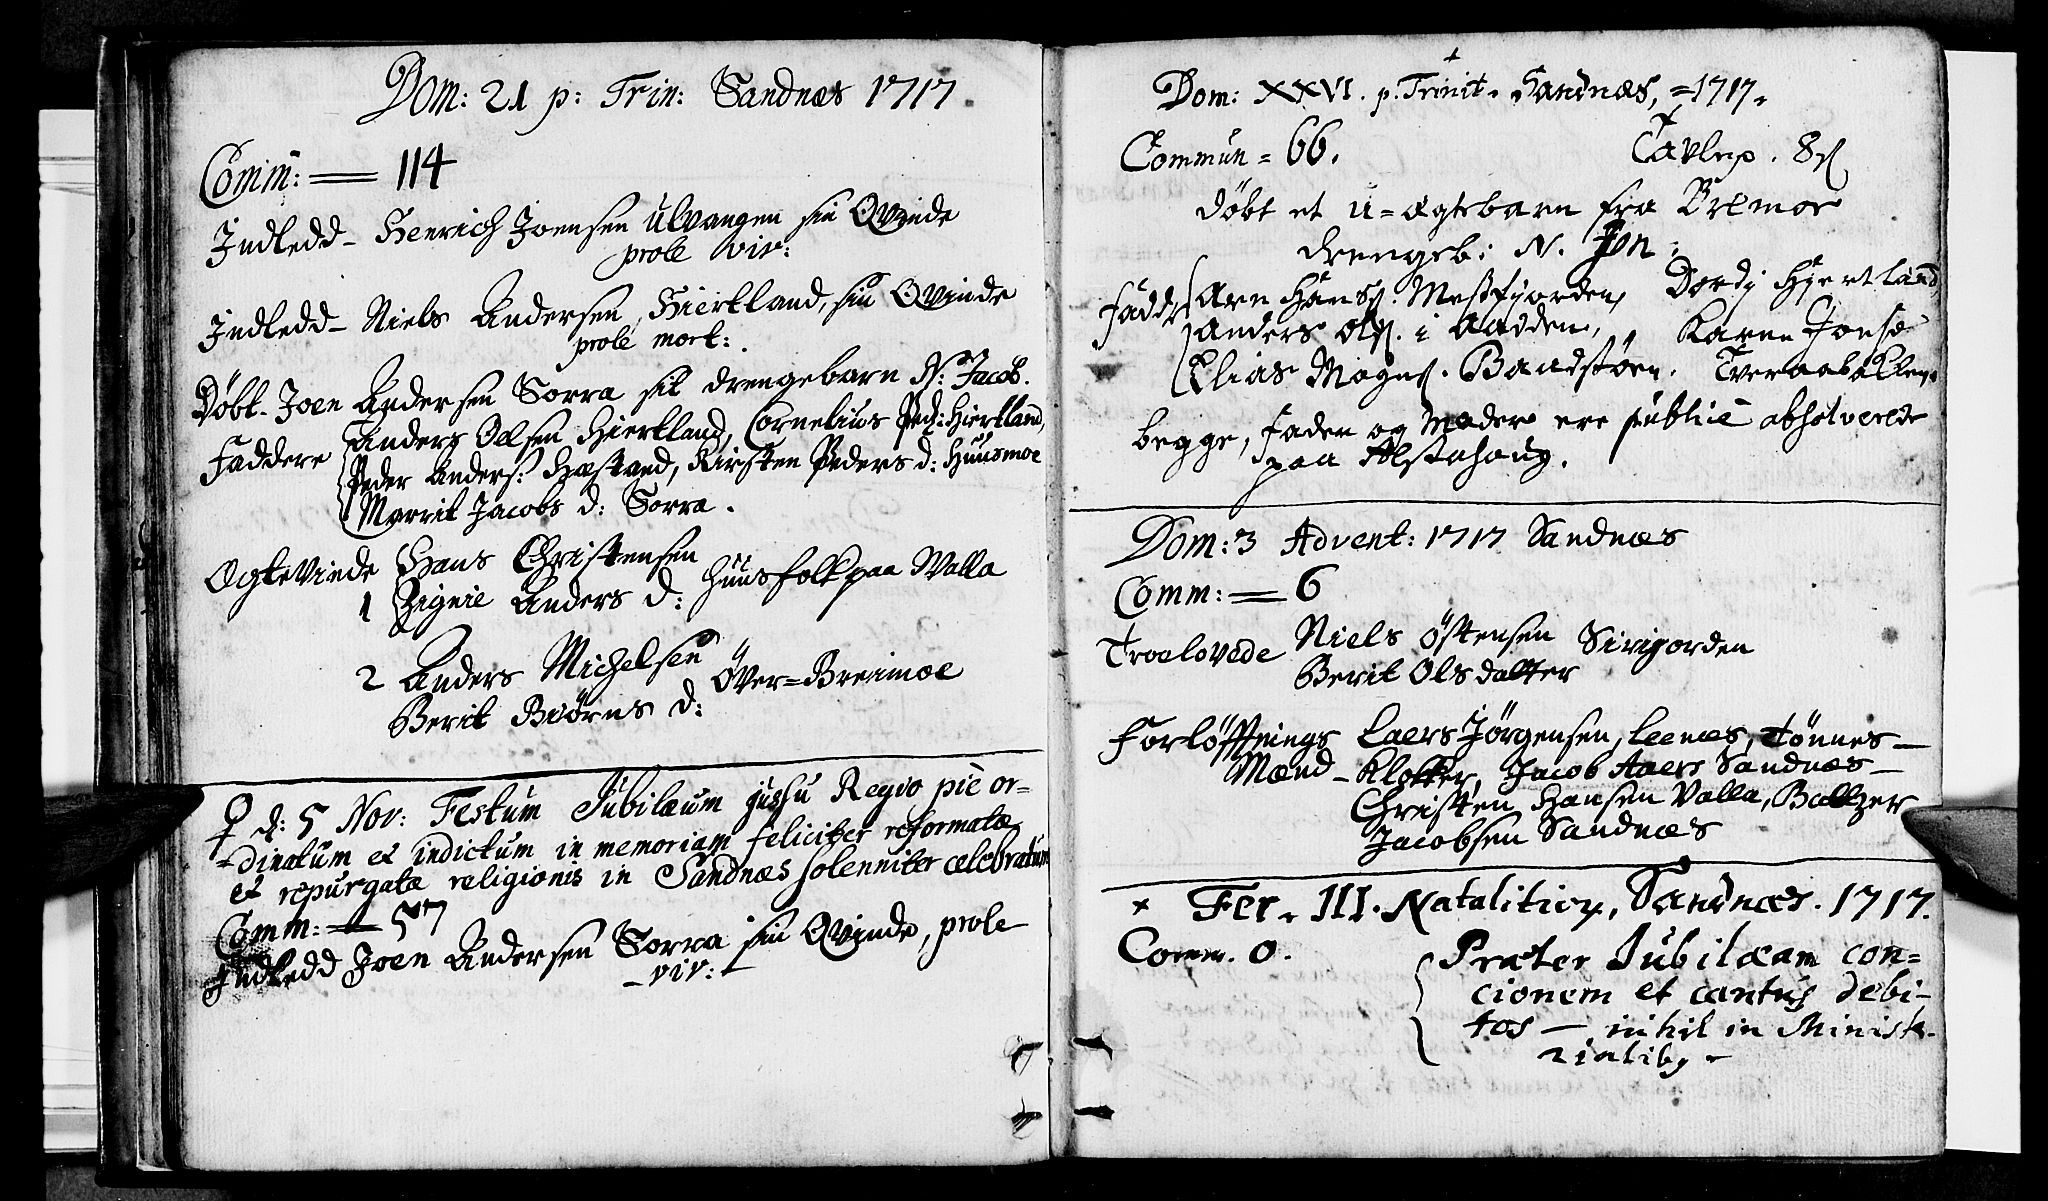 Dom: 21 p: Trin: Sandnæs 1717.
Comm: = 114
Indledd - Henrich Joensen Ulvangen sin Qvinde
prole viv:
Indledd - Niels Andersen Hiertland, sin Qvinde
prole mort:
Døbt - Joen Andersen Sorra sit drengebarn N: Jacob.
Faddere Anders Olsen Hiertland, Cornelius Ped: Hiertland,
Peder Anders: Hæstad, Kirsten Peders d: Huusmoe
Marrit Jacobs d: Sorra.
Ægteviede Hans Christensen
1 Zignie Anders d: Huusfolk paa Walla
2 Anders Michelsen
Berit Biörns d: Över=Breimoe
♀ d: 5 Nov: Festum Jubilæum jussu Regio piè or=
=dinatum et indictum in memoriam feliciter reformatæ
et repurgatæ religionis in Sandnæs solenniter celebratum
Comm: = 57
Indledd Joen Andersen Sorra sin Qvinde, prole
- viv: -
Dom: XXVI. p. Trinit. Sandnæs, = 1717.
Commun = 66. Tavlep. 8 ſ
døbt et u=ægte barn fra Bremoe
drengeb: N. Jon:
Fadd: Arn Hans. Mestfjorden, Dordj Hjertland,
Anders Ols. i Aadden, Karen Jonsd
Elias Mogns. Baadstøen. Tveraabakken.
begge, Faden og Moder ere publicè absolverede
paa Alstahoug.
Dom: 3 Advent: 1717 Sandnæs
Comm: = 6
Troelovede Niels Östensen Sivigorden
Berit Olsdatter
Forlöffnings Laers Jörgensen, Leenæs, Tönnes -
Mænd - Klokker, Jacob Aaers Sandnæs -
Christen Hansen Valla, Baltzer
Jacobsen Sandnæs
× Fer. III. Natalitior, Sandnæs. 1717.
Comm. 0. Præter Jubilæam con=
cionem et cantus debi-
tos - nihil in Ministe-
rialib9 -